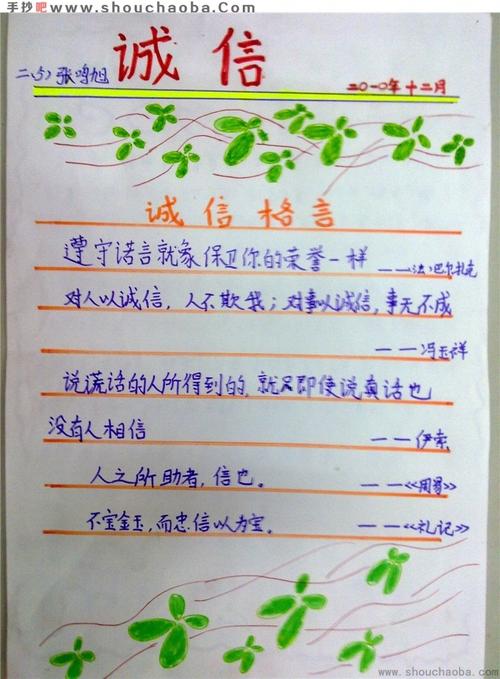 手抄吧 www.shouchaoba.com
诚信
二(5)张鸣旭
二〇一〇年十二月
诚信格言
遵守诺言就象保卫你的荣誉一样
——法:巴尔扎克
对人以诚信,人不欺我;对事以诚信,事无不成
——冯玉祥
说谎话的人所得到的,就只即使说真话也
没有人相信
——伊索
人之所助者,信也。 ——《周易》
不宝金玉,而忠信以为宝。 ——《礼记》
www.shouchaoba.com